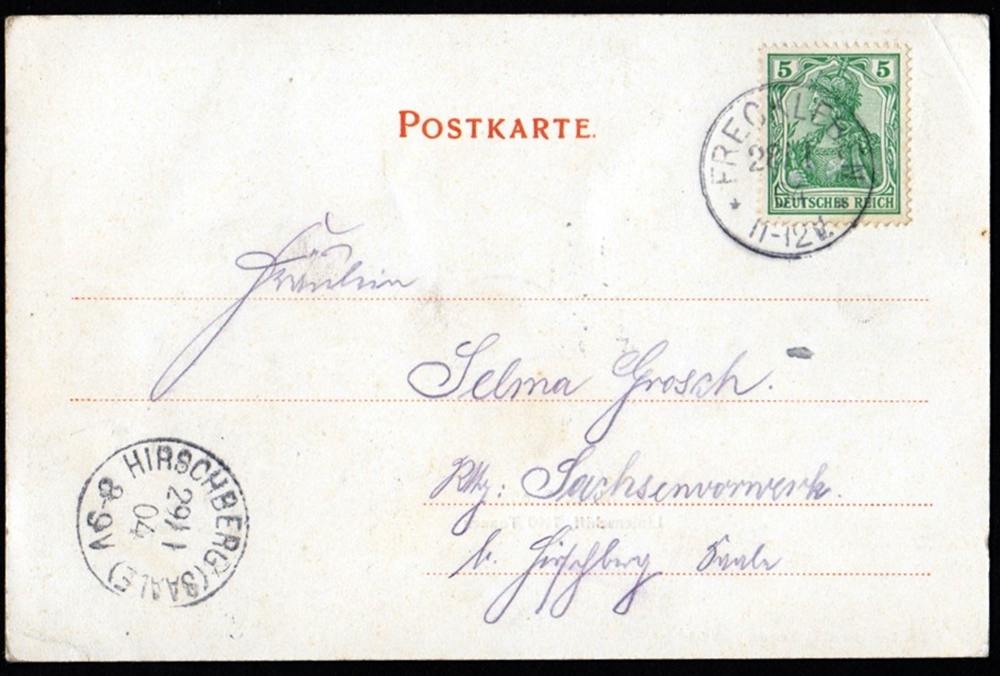 5 5
POSTKARTE.
DEUTSCHES REICH
11-12V.
Fräulein
Selma Grosch.
Rttg: Sachsenvorwerk.
b. Hirschberg Saale
HIRSCHBERG (SAALE)
29/1
04
V6-8